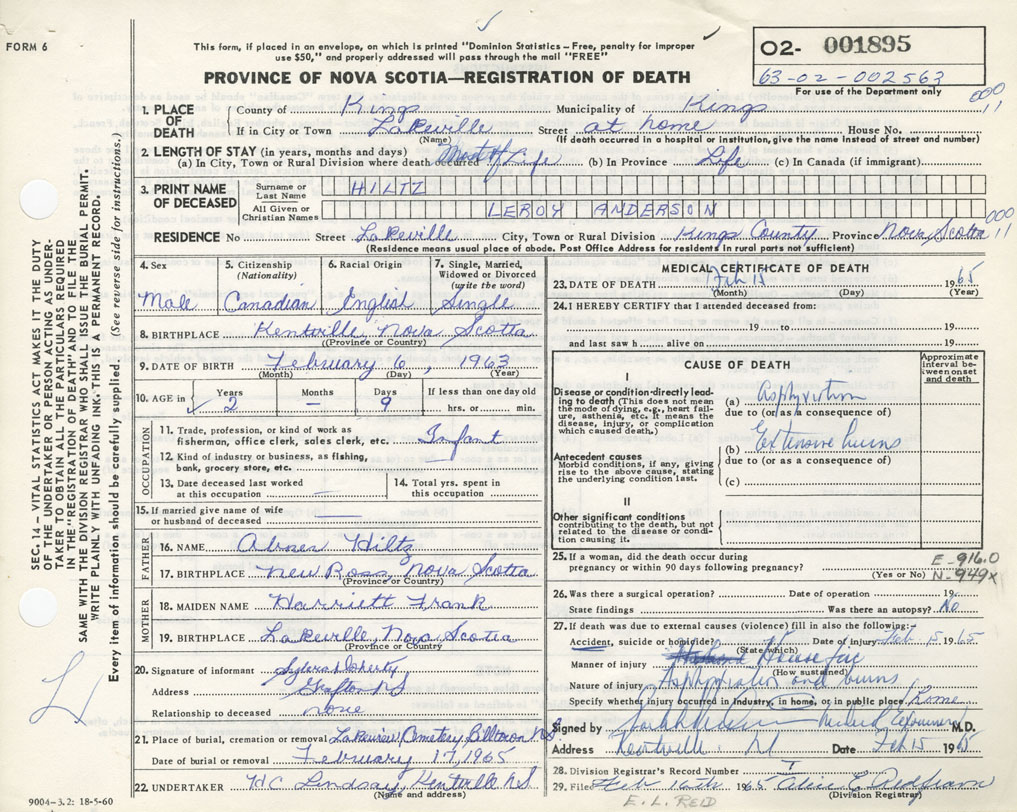 FORM 6
This form, if placed in an envelope, on which is printed "Dominion Statistics – Free, penalty for improper
use $50," and properly addressed will pass through the mail "FREE"
PROVINCE OF NOVA SCOTIA—REGISTRATION OF DEATH
O2- 001895
63-02-002563
For use of the Department only
SEC. 14 – VITAL STATISTICS ACT MAKES IT THE DUTY
OF THE UNDERTAKER OR PERSON ACTING AS UNDER-
TAKER TO OBTAIN ALL THE PARTICULARS REQUIRED
IN THE "REGISTRATION OF DEATH" AND TO FILE THE
SAME WITH THE DIVISION REGISTRAR WHO SHALL ISSUE THE BURIAL PERMIT.
WRITE PLAINLY WITH UNFADING INK, THIS IS A PERMANENT RECORD.
Every item of information should be carefully supplied. (See reverse side for instructions.)
1. PLACE OF DEATH
County of Kings Municipality of Kings
000 11
If in City or Town Lakeville Street at home House No.
(Name) (If death occurred in a hospital or institution, give the name instead of street and number)
2. LENGTH OF STAY (in years, months and days)
(a) In City, Town or Rural Division where death occurred Most of Life (b) In Province Life (c) In Canada (if immigrant)
3. PRINT NAME OF DECEASED
Surname or Last Name HILTZ
All Given or Christian Names LEROY ANDERSON
000 11
RESIDENCE No Street Lakeville City, Town or Rural Division Kings County Province Nova Scotia
(Residence means usual place of abode. Post Office Address for residents in rural parts not sufficient)
4. Sex Male
5. Citizenship (Nationality) Canadian
6. Racial Origin English
7. Single, Married, Widowed or Divorced (write the word) Single
8. BIRTHPLACE Kentville Nova Scotia
(Province or Country)
9. DATE OF BIRTH February 6, 1963
(Month) (Day) (Year)
10. AGE in Years 2 Months – Days 9 If less than one day old hrs. or min.
OCCUPATION
11. Trade, profession, or kind of work as
fisherman, office clerk, sales clerk, etc. Infant
12. Kind of industry or business, as fishing,
bank, grocery store, etc.
13. Date deceased last worked
at this occupation —
14. Total yrs. spent in
this occupation
15. If married give name of wife
or husband of deceased —
FATHER
16. NAME Abner Hiltz
17. BIRTHPLACE New Ross, Nova Scotia
(Province or Country)
MOTHER
18. MAIDEN NAME Harriett Frank
19. BIRTHPLACE Lakeville, Nova Scotia
(Province or Country)
20. Signature of informant
Address Grafton NS
Relationship to deceased none
21. Place of burial, cremation or removal Lakeview Cemetery Billtown N.S.
Date of burial or removal February 17, 1965
22. UNDERTAKER HC Lindsay, Kentville NS
(Name and address)
9004-3.2: 18-5-60
MEDICAL CERTIFICATE OF DEATH
23. DATE OF DEATH Feb 15 1965
(Month) (Day) (Year)
24. I HEREBY CERTIFY that I attended deceased from:
19 to 19
and last saw h alive on 19
CAUSE OF DEATH
Approximate interval between onset and death
I
Disease or condition directly leading to death (This does not mean the mode of dying, e.g., heart failure, asthenia, etc. It means the disease, injury, or complication which caused death.)
(a) Asphyxiation
due to (or as a consequence of)
Antecedent causes
Morbid conditions, if any, giving rise to the above cause, stating the underlying condition last.
(b) Extensive burns
due to (or as a consequence of)
(c)
II
Other significant conditions
contributing to the death, but not related to the disease or condition causing it.
25. If a woman, did the death occur during
pregnancy or within 90 days following pregnancy?
(Yes or No)
E-916.0
N-949x
26. Was there a surgical operation? Date of operation 19
State findings Was there an autopsy? No
27. If death was due to external causes (violence) fill in also the following:-
Accident, suicide or homicide? Date of injury Feb 15 1965
(State which)
Manner of injury House fire
(How sustained)
Nature of injury Asphyxiation and burns
Specify whether injury occurred in industry, in home, or in public place Home
Signed by Medical Examiner M.D.
Address Kentville NS Date Feb 15 1965
28. Division Registrar's Record Number 7
29. Filed Feb 16th 1965
(Division Registrar)
E. L. REID